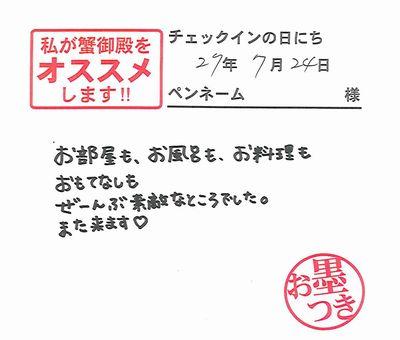 私が蟹御殿を
オススメ
します!!
チェックインの日にち
29年 7月 24日
ペンネーム 様
お部屋も、お風呂も、お料理も
おもてなしも
ぜーんぶ素敵なところでした。
また来ます♡
お墨つき